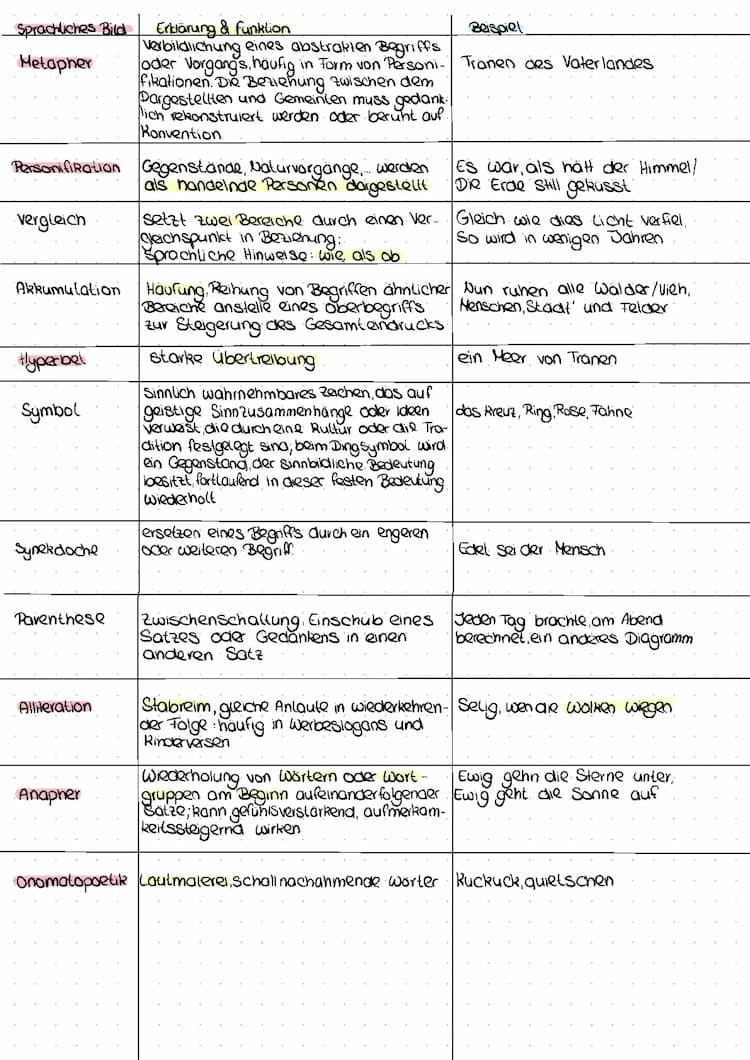 Sprachliches Bild Erklärung & Funktion Beispiel
Metapher
Verbildlichung eines abstrakten Begriffs
oder Vorgangs, häufig in Form von Personi-
fikationen. Die Beziehung zwischen dem
Dargestellten und Gemeinten muss gedank-
lich rekonstruiert werden oder beruht auf
Konvention
Tränen des Vaterlandes
Personifikation
Gegenstände, Naturvorgänge,... werden
als handelnde Personen dargestellt
Es war, als hätt der Himmel/
Die Erde still geküsst
Vergleich
setzt zwei Bereiche durch einen Ver-
gleichspunkt in Beziehung;
Sprachliche Hinweise: wie, als ob
Gleich wie dies Licht verfiel,
So wird in wenigen Jahren
Akkumulation
Häufung, Reihung von Begriffen ähnlicher
Bereiche anstelle eines Oberbegriffs
zur Steigerung des Gesamteindrucks
Nun ruhen alle Wälder/Vieh,
Menschen, Städt' und Felder
Hyperbel
starke Übertreibung
ein Meer von Tränen
Symbol
sinnlich wahrnehmbares Zeichen, das auf
geistige Sinnzusammenhänge oder Ideen
verweist, die durch eine Kultur oder die Tra-
dition festgelegt sind; beim Dingsymbol wird
ein Gegenstand, der sinnbildliche Bedeutung
besitzt, fortlaufend in dieser festen Bedeutung
wiederholt
das Kreuz, Ring, Rose, Fahne
Synekdoche
ersetzen eines Begriffs durch ein engeren
oder weiteren Begriff
Edel sei der Mensch
Parenthese
Zwischenschaltung, Einschub eines
Satzes oder Gedankens in einen
anderen Satz
Jeden Tag brachte, am Abend
berechnet, ein anderes Diagramm
Alliteration
Stabreim, gleiche Anlaute in wiederkehren-
der Folge: häufig in Werbeslogans und
Kinderversen
Selig, wen die Wolken wiegen
Anapher
Wiederholung von Wörtern oder Wort-
gruppen am Beginn aufeinanderfolgender
Sätze; kann gefühlsverstärkend, aufmerksam-
keitssteigernd wirken
Ewig gehn die Sterne unter,
Ewig geht die Sonne auf
Onomatopoetik
Lautmalerei, schallnachahmende Wörter
Kuckuck, quietschen